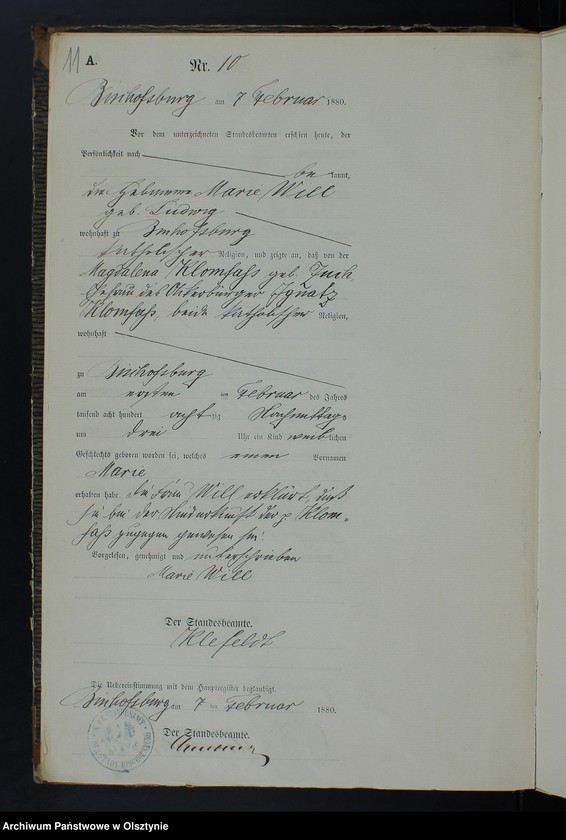 11 A. Nr. 10
Bischofsburg am 7 Februar 1880.
Vor dem unterzeichneten Standesbeamten erschien heute, der
Persönlichkeit nach
be kannt,
die Hebamme Marie Will
geb. Ludwig
wohnhaft zu Bischofsburg
katholischer Religion, und zeigte an, daß von der
Magdalena Klomfaß geb.
Ehefrau des Ackerbürger Ignatz
Klomfaß, beide katholischer Religion,
wohnhaft
zu Bischofsburg
am ersten ten Februar des Jahres
tausend acht hundert acht zig Nachmittags
um drei Uhr ein Kind weib lichen
Geschlechts geboren worden sei, welches einen Vornamen
Marie
erhalten habe. die Frau Will erklärt, daß
sie bei der Niederkunft der p. Klom-
faß zugegen gewesen sei.
Vorgelesen, genehmigt und unterschrieben
Marie Will
Der Standesbeamte.
Klefeldt
Die Uebereinstimmung mit dem Hauptregister beglaubigt.
Bischofsburg am 7 ten Februar 1880.
Der Standesbeamte.
Archiwum Państwowe w Olsztynie